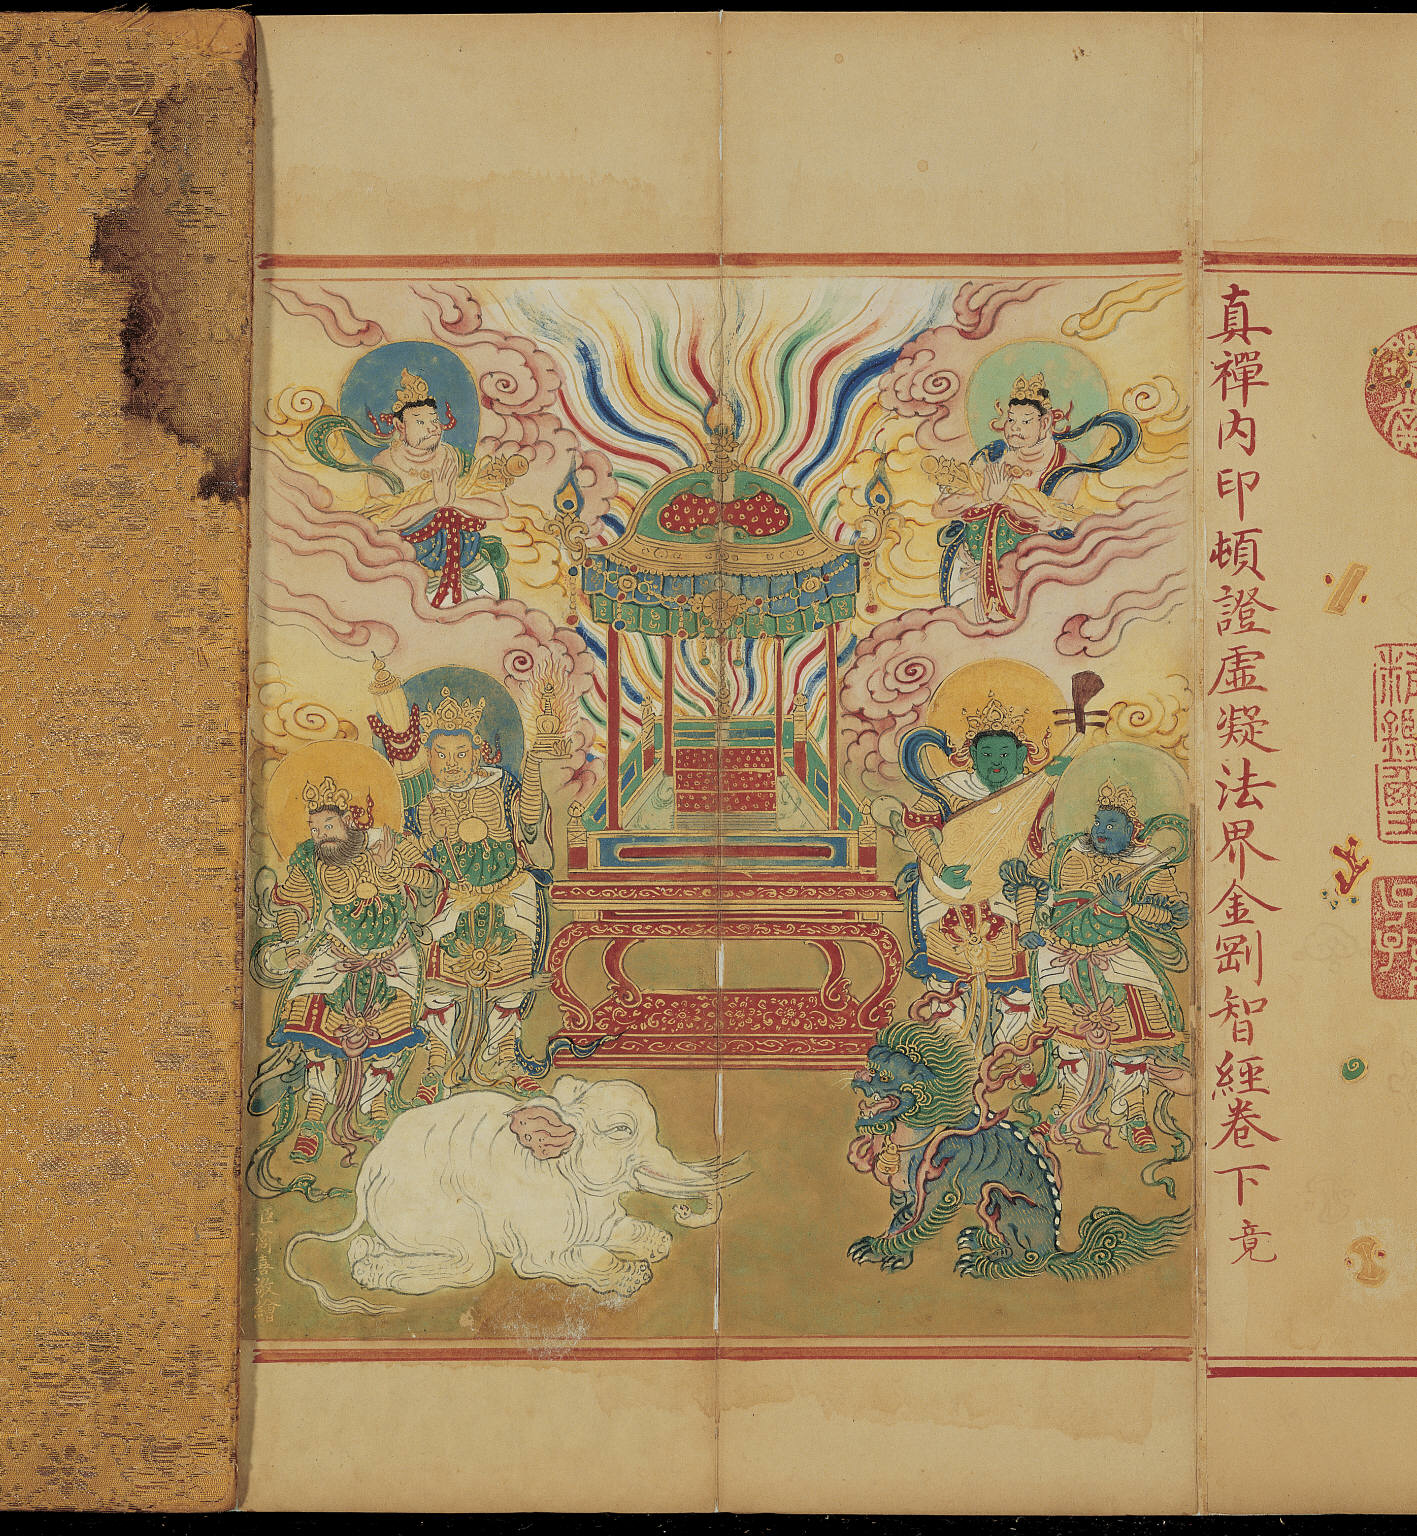 真禪内印頓證虛凝法界金剛智經卷下竟
臣商喜敬繪